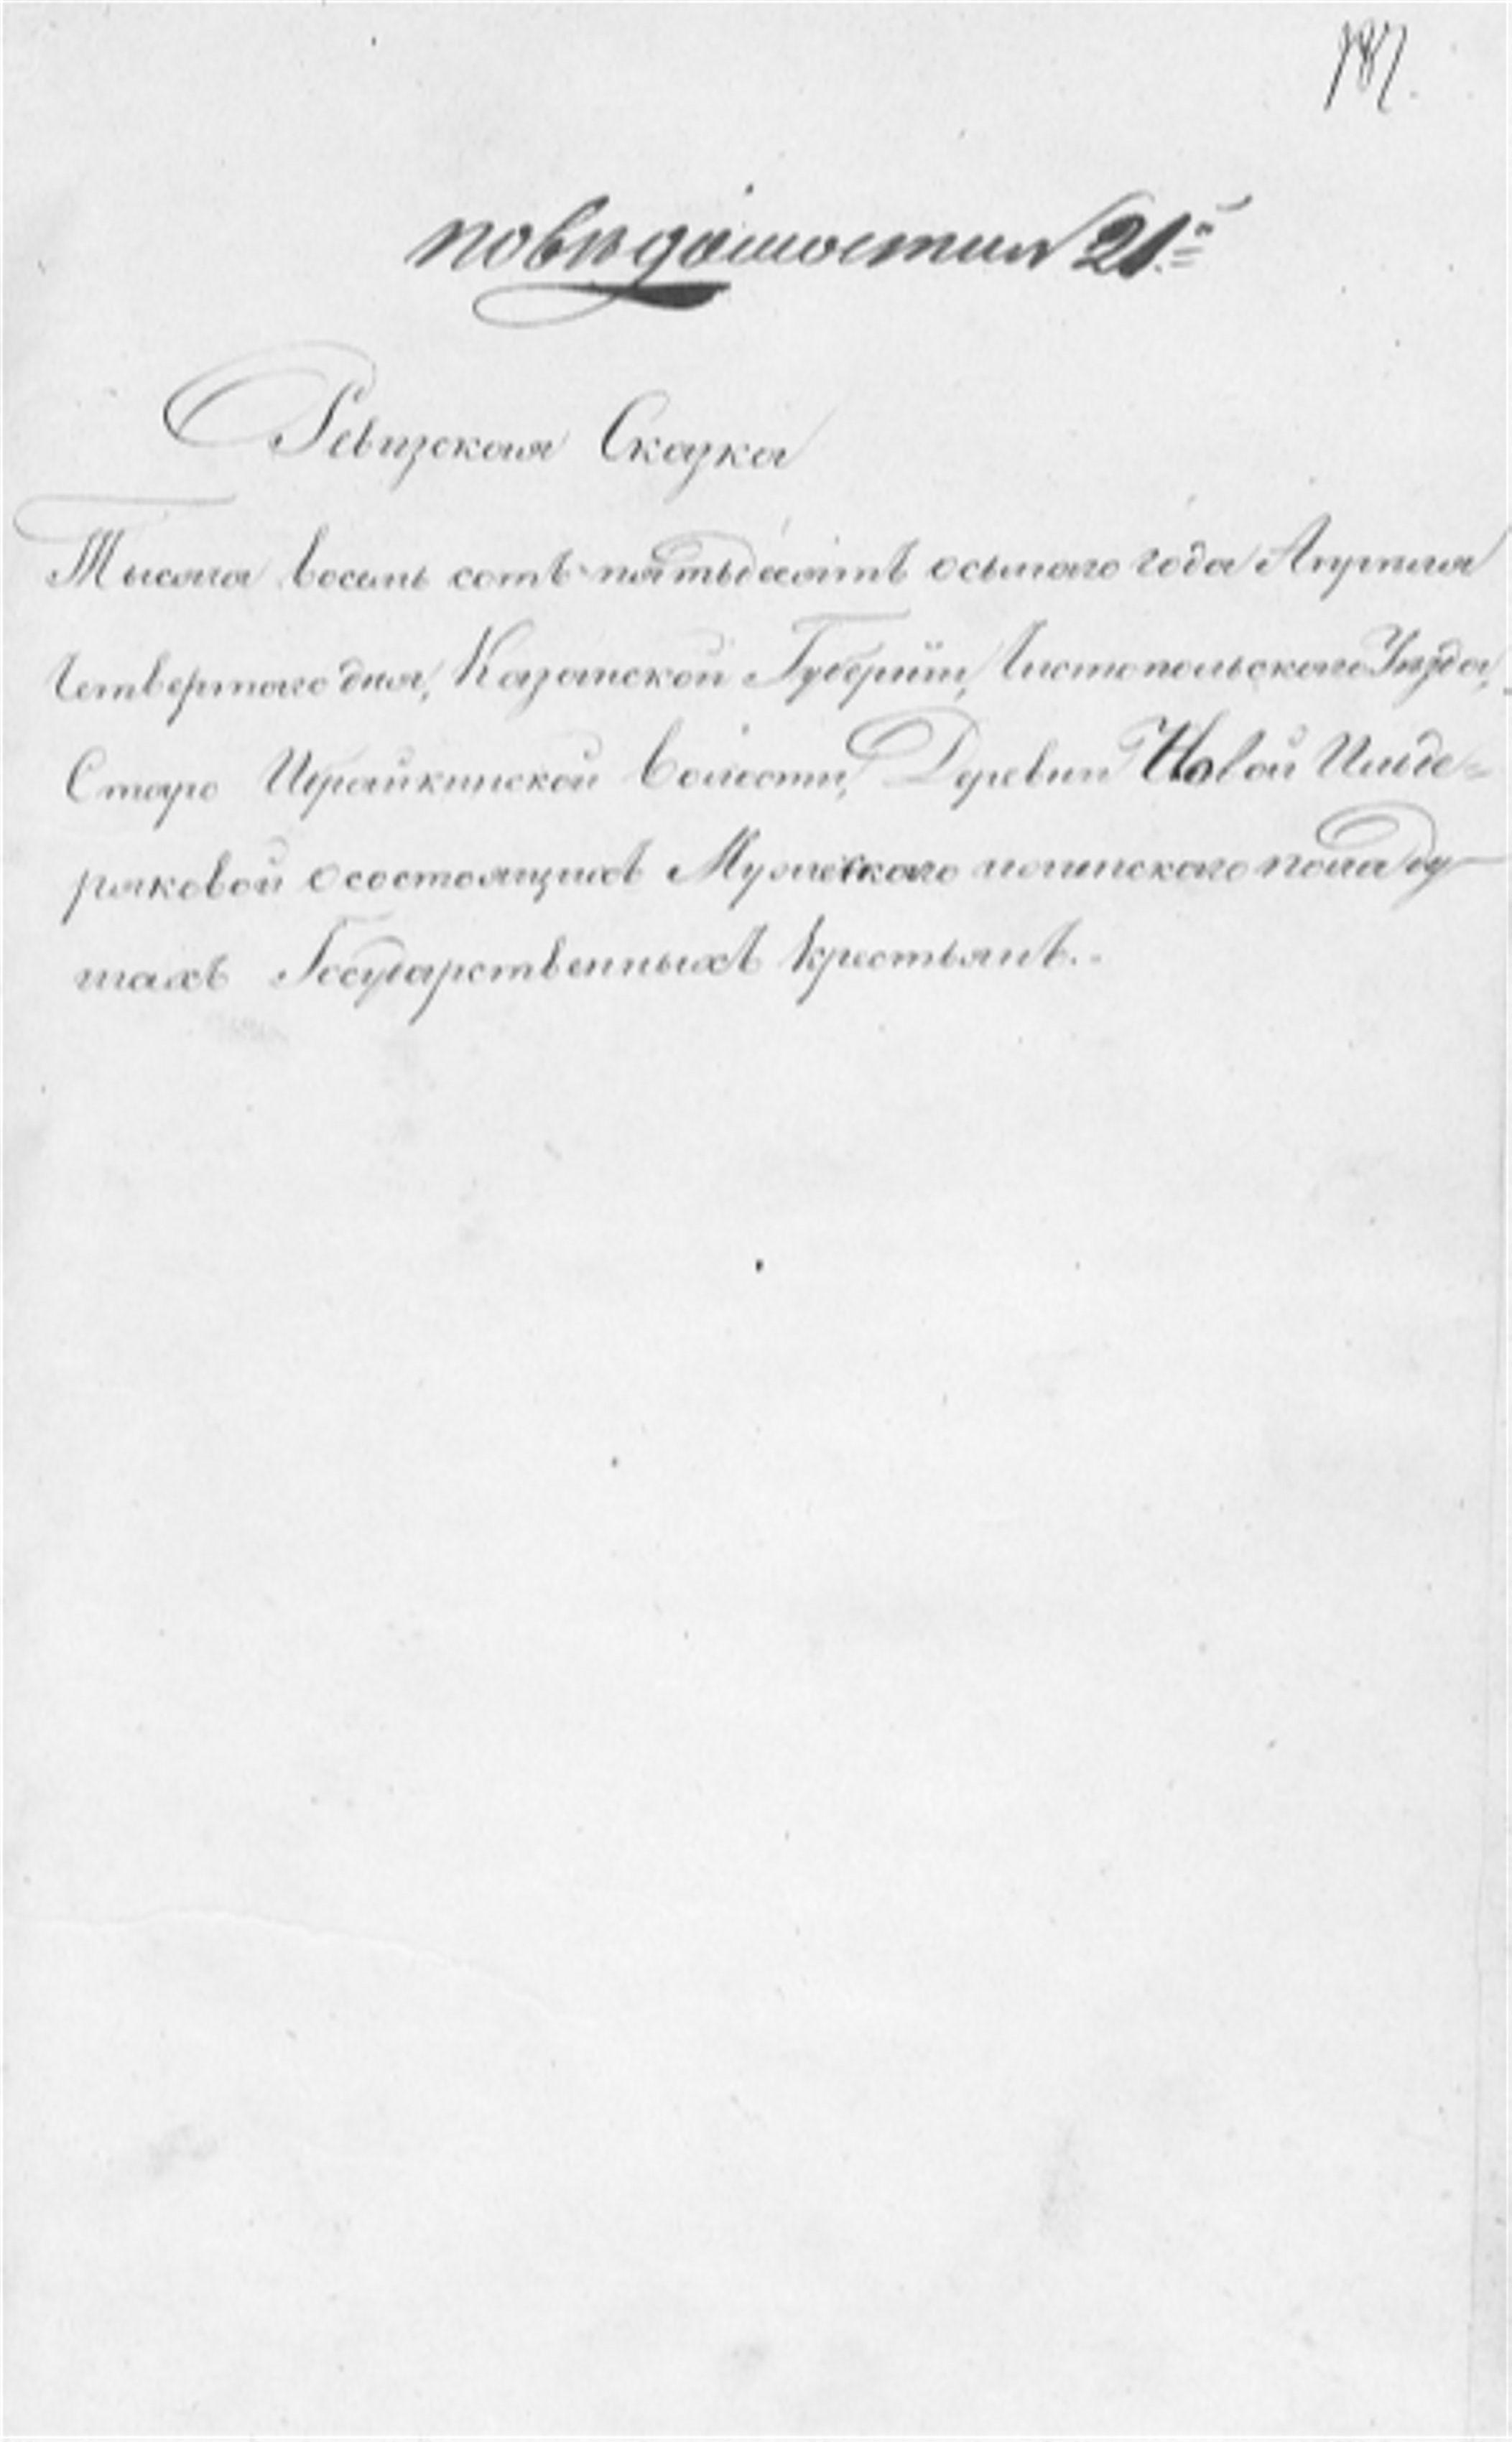 187.
повѣдомости № 21й
Ревизская Сказка
Тысяча восемь сотъ пятьдесятъ осьмаго года Апрѣля
Четвертаго дня, Казанской Губерніи, Чистопольскаго Уѣзда,
Старо Ибрайкинской волости, Деревни Новой
ряковой о состоящихъ Мужескаго и женскаго пола ду
шахъ Государственныхъ крестьянъ.